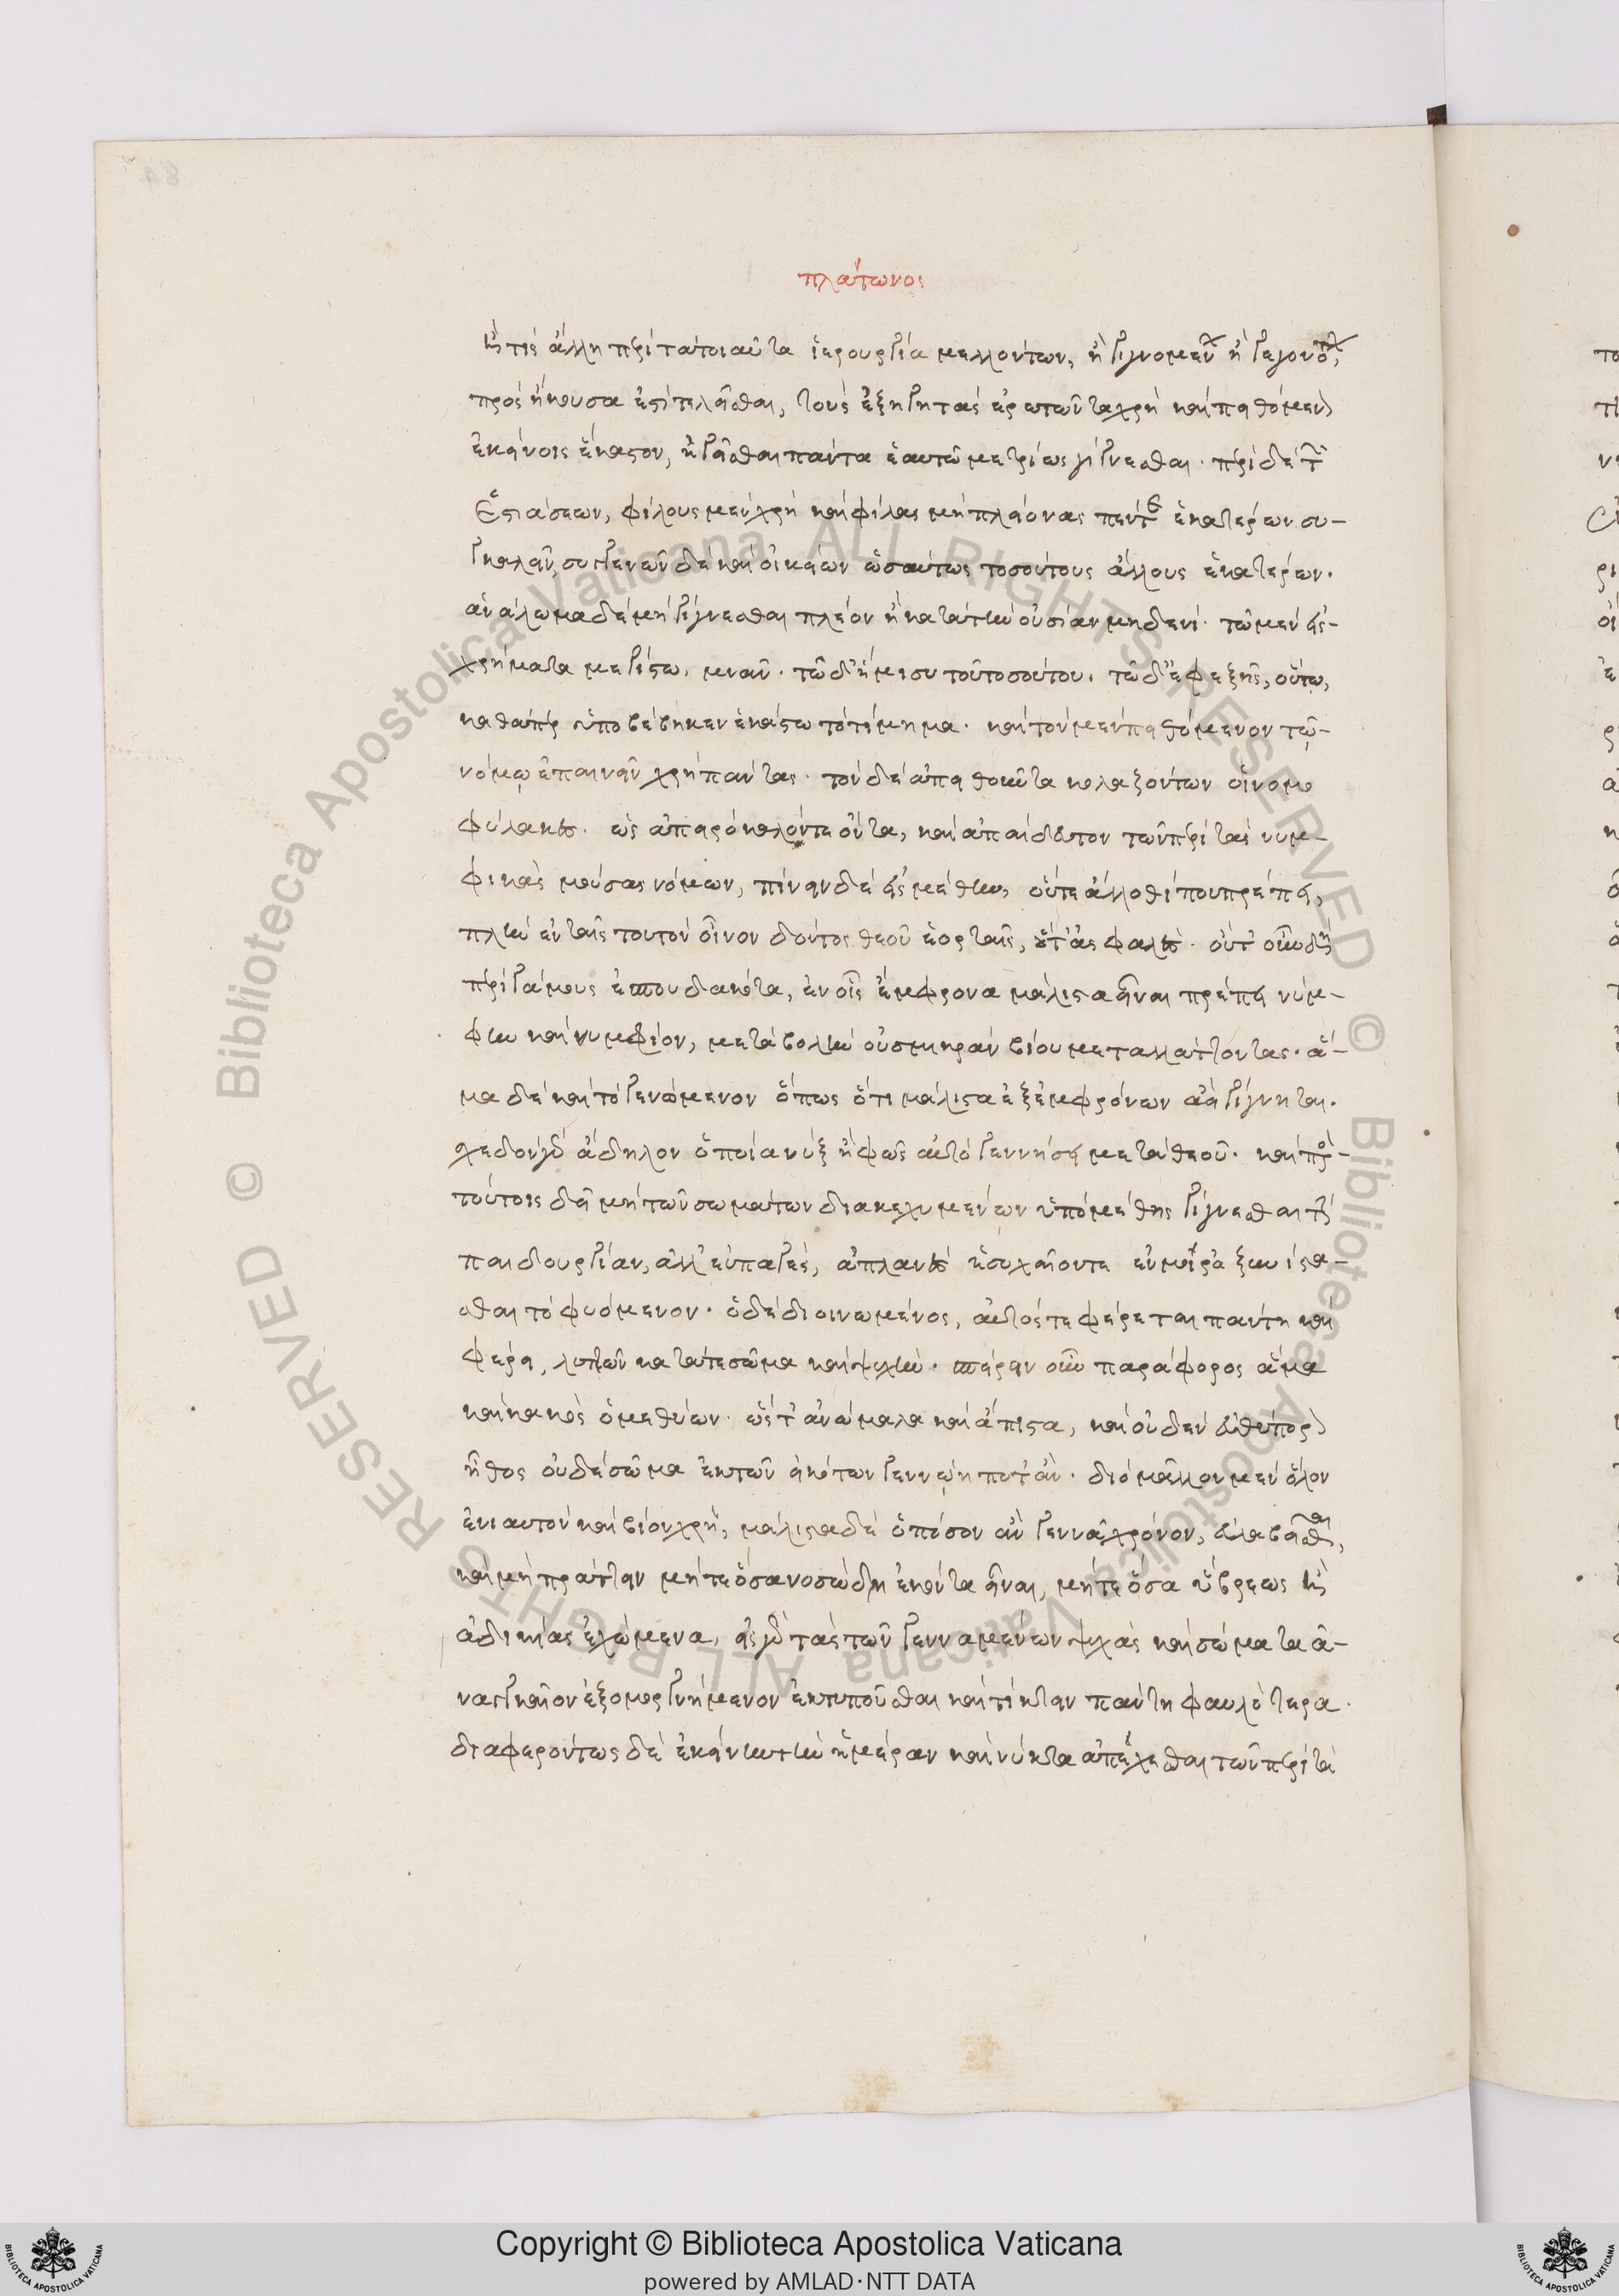 πλάτωνος
ἤ τις ἄλλη περὶ τὰ τοιαῦτα ἱερουργία μελλόντων, ἢ γιγνομένων ἢ γεγονότων,
προσήκουσα ἐπιτελεῖσθαι, τοὺς ἐξηγητὰς ἐρωτῶντα χρὴ καὶ πειθόμενον
ἐκείνοις ἕκαστον, ἡγεῖσθαι πάντα ἑαυτῷ μετρίως γίγνεσθαι. περὶ δὲ τῶν
ἑστιάσεων, φίλους μὲν χρὴ καὶ φίλας μὴ πλείονας πέντε ἑκατέρων συ-
γκαλεῖν, συγγενῶν δὲ καὶ οἰκείων ὡσαύτως τοσούτους ἄλλους ἑκατέρων.
ἀνάλωμα δὲ μὴ γίγνεσθαι πλέον ἢ κατὰ τὴν οὐσίαν μηδενί. τῷ μὲν εἰς
χρήματα μεγίστῳ, μνᾶν. τῷ δ' ἥμισυ τοῦ τοσούτου. τῷ δ' ἐφεξῆς, οὕτω,
καθάπερ ὑποβέβηκεν ἑκάστῳ τὸ τίμημα. καὶ τὸν μὲν πειθόμενον τῷ
νόμῳ ἐπαινεῖν χρὴ πάντας. τὸν δὲ ἀπειθοῦντα κολαζόντων οἱ νομο
φύλακες. ὡς ἀπειρόκαλόν τε ὄντα, καὶ ἀπαίδευτον τῶν περὶ τὰς νυμ-
φικὰς μούσας νόμων, πίνειν δὲ εἰς μέθην, οὔτε ἄλλοθί που πρέπει,
πλὴν ἐν ταῖς τοῦ τὸν οἶνον δόντος θεοῦ ἑορταῖς, οὔτ' ἀσφαλές. οὔτ' οὖν δὴ
περὶ γάμους ἐσπουδακότα, ἐν οἷς ἔμφρονα μάλιστα εἶναι πρέπει νύμ-
φην καὶ νυμφίον, μεταβολὴν οὐ σμικρὰν βίου μεταλλάττοντας. ἅ-
μα δὲ καὶ τὸ γενόμενον ὅπως ὅτι μάλιστα ἐξ ἐμφρόνων ἀεὶ γίγνηται.
σχεδὸν γὰρ ἄδηλον ὁποία νὺξ ἢ φῶς αὐτὸ γεννήσει μετὰ θεοῦ. καὶ πρὸς
τούτοις δεῖ μὴ τῶν σωμάτων διακεχυμένων ὑπὸ μέθης γίγνεσθαι τὴν
παιδουργίαν, ἀλλ' εὐπαγές, ἀπλανὲς ἡσυχαῖόν τε ἐν μοίρᾳ ξυνίστα-
σθαι τὸ φυόμενον. ὁ δὲ διοινωμένος, αὐτός τε φέρεται πάντῃ καὶ
φέρει, λυττῶν κατά τε σῶμα καὶ ψυχήν. σπείρειν οὖν παράφορος ἅμα
καὶ κακὸς ὁ μεθύων. ὥστ' ἀνώμαλα καὶ ἄπιστα, καὶ οὐδὲν εὐθύπορον
ἦθος οὐδὲ σῶμα ἐκ τῶν εἰκότων γεννῴη ποτ' ἄν. διὸ μᾶλλον μὲν ὅλον
ἐνιαυτὸν καὶ βίον χρὴ, μάλιστα δὲ ὁπόσον ἂν γεννᾷ χρόνον, εὐλαβεῖσθαι,
καὶ μὴ πράττειν μήτε ὅσα νοσώδη ἑκόντα εἶναι, μήτε ὅσα ὕβρεως ἢ
ἀδικίας ἐχόμενα, εἰς γὰρ τὰς τῶν γεννωμένων ψυχὰς καὶ σώματα ἀ-
ναγκαῖον ἐξομοργνύμενον ἐκτυποῦσθαι καὶ τίκτειν πάντῃ φαυλότερα.
διαφερόντως δὲ ἐκείνην τὴν ἡμέραν καὶ νύκτα ἀπέχεσθαι τῶν περὶ τὰ
Copyright © Biblioteca Apostolica Vaticana
powered by AMLAD·NTT DATA